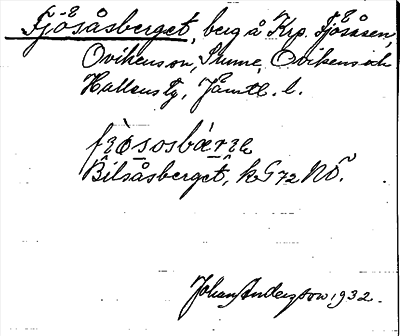 Fjösåsberget, berg å Krp. Fjösåsen,
Ovikens sn, Stume, Ovikens och
Hallens tg, Jämtl. l.
Bilsåsberget, k G 72 NÖ.
Johan Anderzson 1932.